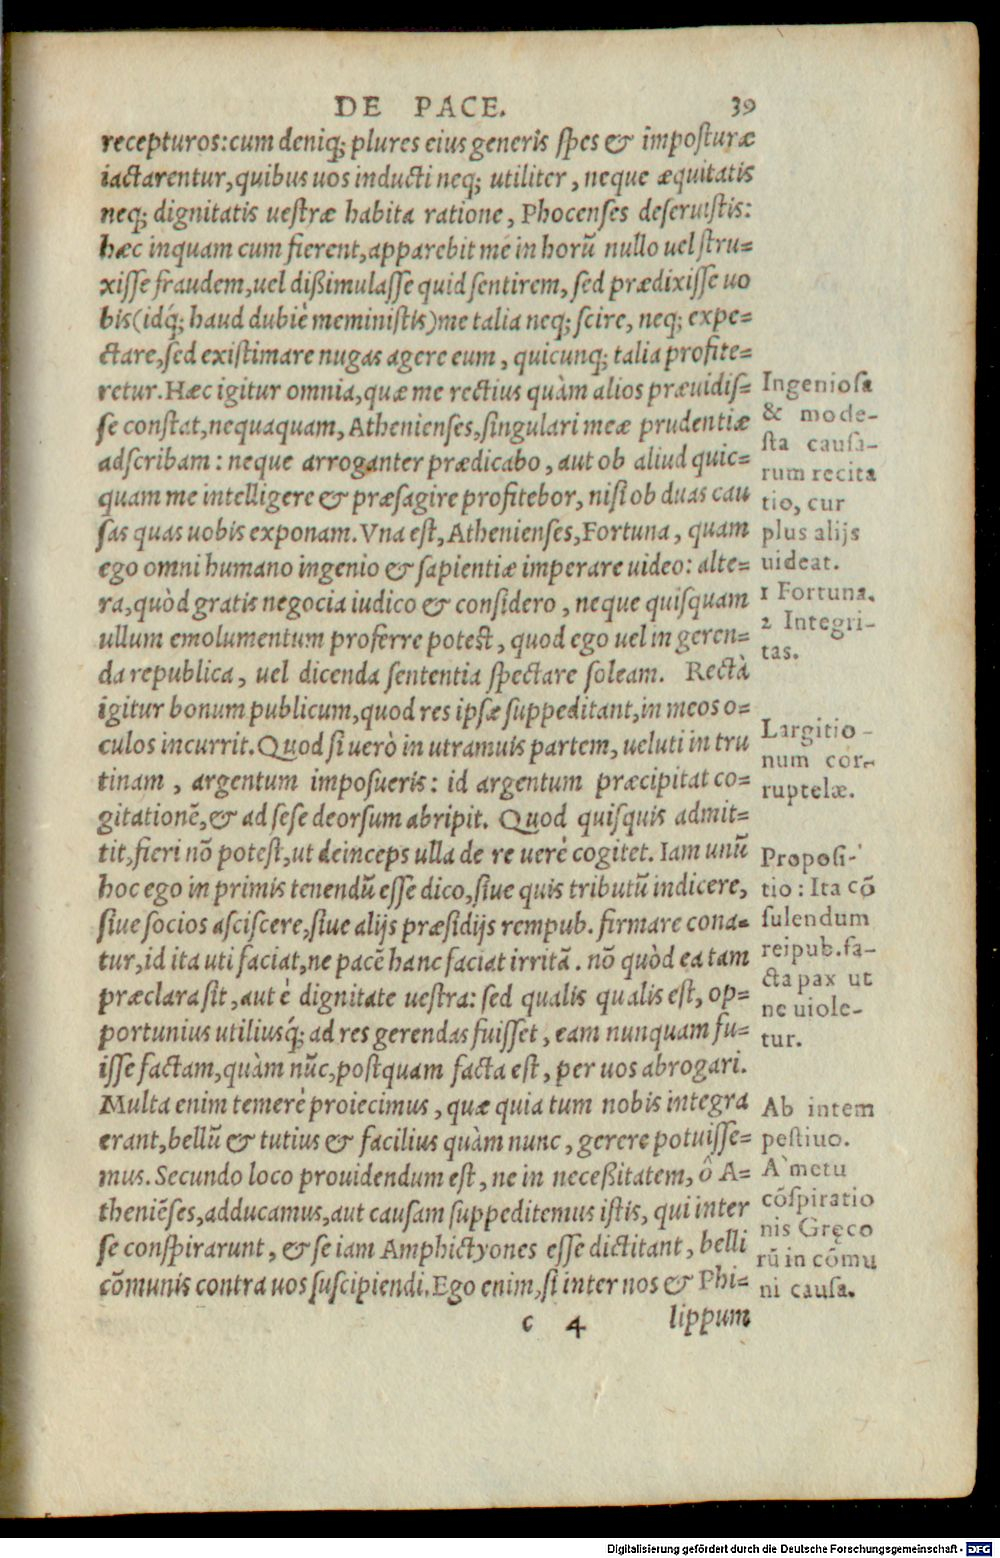 DE PACE. 39
recepturos: cum deniq; plures eius generis spes & imposturæ
iactarentur, quibus uos inducti neq; utiliter, neque æquitatis
neq; dignitatis uestræ habita ratione, Phocenses deseruistis:
hæc inquam cum fierent, apparebit me in horũ nullo uel stru=
xisse fraudem, uel dißimulasse quid sentirem, sed prædixisse uo
bis (idq́; haud dubiè meministis) me talia neq; scire, neq; expe=
ctare, sed existimare nugas agere eum, quicunq; talia profite=
retur. Hæc igitur omnia, quæ me rectius quàm alios præuidis=
se constat, nequaquam, Athenienses, singulari meæ prudentiæ
adscribam: neque arroganter prædicabo, aut ob aliud quic=
quam me intelligere & præsagire profitebor, nisi ob duas cau
sas quas uobis exponam. Vna est, Athenienses, Fortuna, quam
ego omni humano ingenio & sapientiæ imperare uideo: alte=
ra, quòd gratis negocia iudico & considero, neque quisquam
ullum emolumentum proferre potest, quod ego uel in geren=
da republica, uel dicenda sententia spectare soleam. Rectà
igitur bonum publicum, quod res ipsæ suppeditant, in meos o=
culos incurrit. Quod si uerò in utramuis partem, ueluti in tru
tinam, argentum imposueris: id argentum præcipitat co=
gitationẽ, & ad sese deorsum abripit. Quod quisquis admit=
tit, fieri nõ potest, ut deinceps ulla de re uerè cogitet. Iam unũ
hoc ego in primis tenendũ esse dico, siue quis tributũ indicere,
siue socios asciscere, siue alijs præsidijs rempub. firmare cona=
tur, id ita uti faciat, ne pacẽ hanc faciat irritã. nõ quòd ea tam
præclara sit, aut è dignitate uestra: sed qualis qualis est, op=
portunius utiliusq́; ad res gerendas fuisset, eam nunquam fu=
isse factam, quàm nũc, postquam facta est, per uos abrogari.
Multa enim temerè proiecimus, quæ quia tum nobis integra
erant, bellũ & tutius & facilius quàm nunc, gerere potuisse=
mus. Secundo loco prouidendum est, ne in neceßitatem, ô A=
theniẽses, adducamus, aut causam suppeditemus istis, qui inter
se conspirarunt, & se iam Amphictyones esse dictitant, belli
cõmunis contra uos suscipiendi. Ego enim, si inter nos & Phi=
c 4 lippum
Ingeniosa
& mode-
sta causa-
rum recita
tio, cur
plus alijs
uideat.
1 Fortuna.
2 Integri-
tas.
Largitio-
num cor-
ruptelæ.
Proposi-
tio: Ita cõ
sulendum
reipub. fa-
cta pax ut
ne uiole-
tur.
Ab intem
pestiuo.
A metu
cõspiratio
nis Gręco
rũ in cõmu
ni causa.
Digitalisierung gefördert durch die Deutsche Forschungsgemeinschaft - DFG